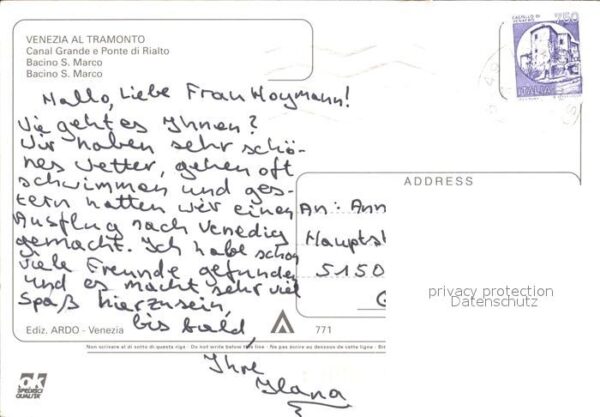 VENEZIA AL TRAMONTO
Canal Grande e Ponte di Rialto
Bacino S. Marco
Bacino S. Marco
750
ITALIA
Hallo, liebe Frau Hoymann!
Wie geht es Ihnen?
Wir haben sehr schö-
nes Wetter, gehen oft
schwimmen und ges-
tern hatten wir einen
Ausflug nach Venedig
gemacht. Ich habe schon
viele Freunde gefunden
und es macht sehr viel
Spaß hier zu sein,
bis bald,
Ihre
Ilana
ADDRESS
An: Ann
Haupts
5150
privacy protection
Datenschutz
Ediz. ARDO - Venezia
771
Non scrivere al di sotto di questa riga - Do not write below this line - Ne pas écrire au dessous de cette ligne -
ok
SPEDISCI
QUALITA'